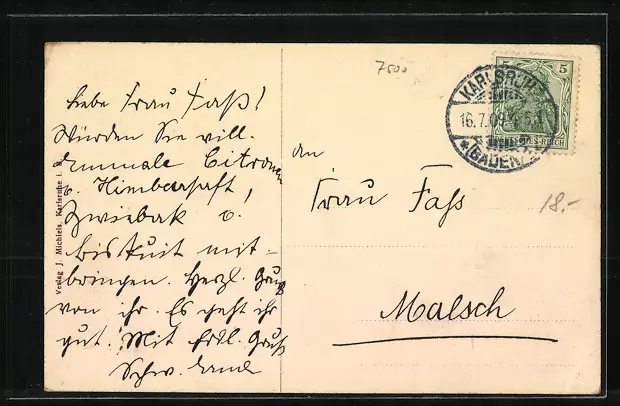 7500
KARLSRUHE
16.7.09
*(BADEN)
5 5
Liebe Frau Faß!
Würden Sie vill.
Citronen
o. Himbeersaft,
Zwiebak o.
Biskuit mit=
bringen. Herzl. Gruß
von ihr. Es geht ihr
gut. Mit frdl. Gruß
Schw.
an
Frau Fass
18.-
Malsch
Verlag J. Michiels, Karlsruhe i. B.